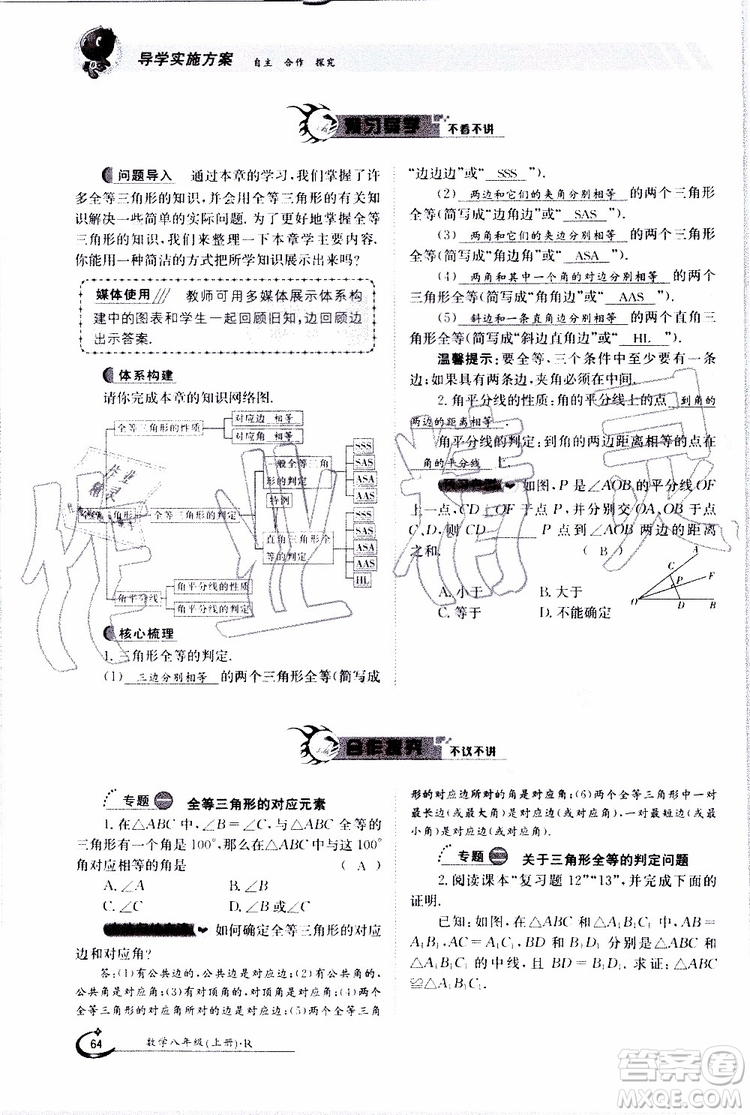 导学实施方案 自主 合作 探究
预习导学 不看不讲
问题导入 通过本章的学习,我们掌握了许
多全等三角形的知识,并用全等三角形的知
识解决一些简单的实际问题.为了更好地掌握全等
三角形的知识,我们来整理一下本章学习内容.
你能用一种简洁的方式把所学知识展示出来吗?
媒体使用 教师可用多媒体展示体系构
建中的图表和学生一起回顾旧知,边回顾边
出示答案.
体系构建
请你完成本章的知识网络图.
全等三角形的性质
对应边 相等
对应角 相等
全等三角形的判定
一般全等三角
形的判定
SSS
SAS
ASA
AAS
特例
直角三角形全
等的判定
SSS
SAS
ASA
AAS
HL
角平分线
角平分线的性质
角平分线的判定
核心梳理
1.三角形全等的判定.
(1) 三边分别相等 的两个三角形全等(简写成
“边边边”或“ SSS ”).
(2) 两边和它们的夹角分别相等 的两个三角形
全等(简写成“边角边”或“ SAS ”).
(3) 两角和它们的夹边分别相等 的两个三角形
全等(简写成“角边角”或“ ASA ”).
(4) 两角和其中一个角的对边分别相等 的两个三角
形全等(简写成“角角边”或“ AAS ”).
(5) 斜边和一条直角边分别相等 的两个直角三角
形全等(简写成“斜边直角边”或“ HL ”).
温馨提示:要全等,三个条件中至少要有一条
边;如果有两条边,夹角必在中间.
2.角平分线的性质:角的平分线上的点 到角的两
边的距离相等 .
角平分线的判定:角的两边距离相等的点在
角的平分线 上.
如图,P是∠AOB的平分线OF
上一点,CD⊥OF于点P,并分别交OA、OB于点
C、D,则CD 点P到∠AOB两边的距离
之和. ( B )
A.小于 B.大于
C.等于 D.不能确定
A
C
F
P
O
D
B
合作探究 不议不讲
专题一 全等三角形的对应元素
1.在△ABC中,∠B=∠C,与△ABC全等的
三角形有一个角是100°,那么在△ABC中与这个
角对应相等的角是 ( A )
A.∠A B.∠B
C.∠C D.∠B或∠C
如何确定全等三角形的对应
边和对应角?
答:(1)有公共边的,公共边是对应边;(2)有公共角的,
公共角是对应角;(3)有对顶角的,对顶角是对应角;(4)两个
形的对应边所对的角是对应角;(6)两个全等三角形中一对
最长边(或最大角)是对应边(或对应角),一对最短边(或最
小角)是对应边(或对应角).
专题二 关于三角形全等的判定问题
2.阅读课本“复习题12”“13”,并完成下面的
证明.
已知:如图,在△ABC和△A₁B₁C₁中,AB=
A₁B₁,AC=A₁C₁,BD和B₁D₁分别是△ABC和
△A₁B₁C₁的中线,且BD=B₁D₁.求证:△ABC
≌△A₁B₁C₁.
64 数学八年级(上册)·R
作业精灵
答案圈
MXQE.COM